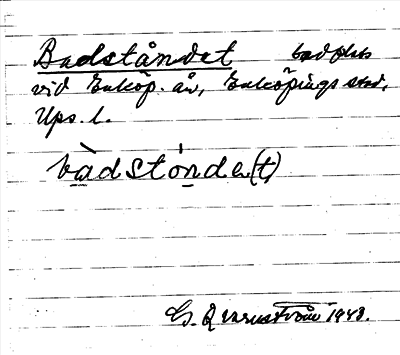 Badståndet badplats
vid Enköp. ån, Enköpings stad,
Ups. l.
bàdstónde(t)
G. Qvarnström 1943.